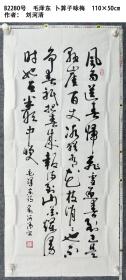 B2280号 毛泽东 卜算子咏梅 110×50cm
作者： 刘河清
风雨送春归飞雪迎春到已是
悬崖百丈冰犹有花枝俏俏也不
争春只把春来报待到山花烂漫
时她在丛中笑
毛泽东词